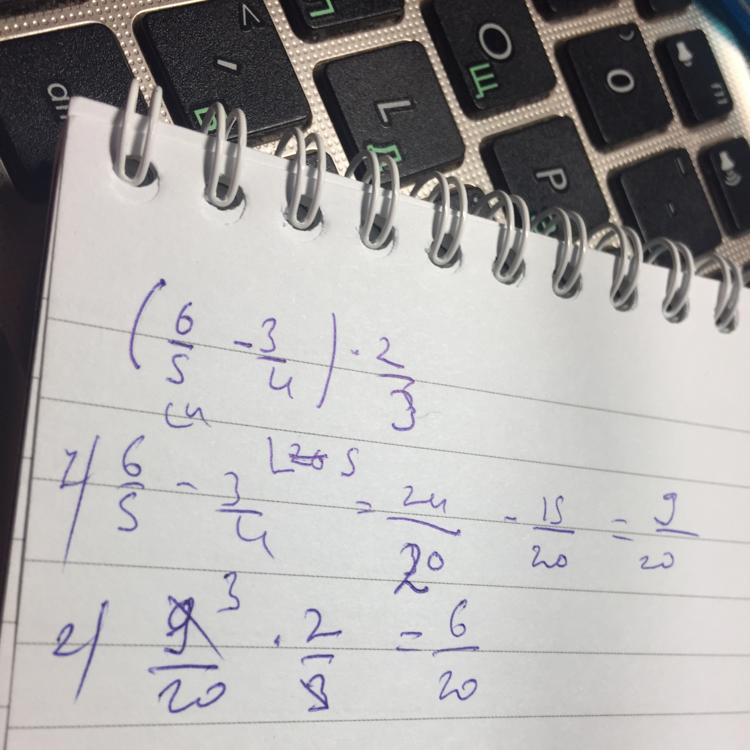 (6/5 - 3/4) · 2/3
1) 6/5 - 3/4 = 24/20 - 15/20 = 9/20
2) 9/20 3 · 2/3 = 6/20